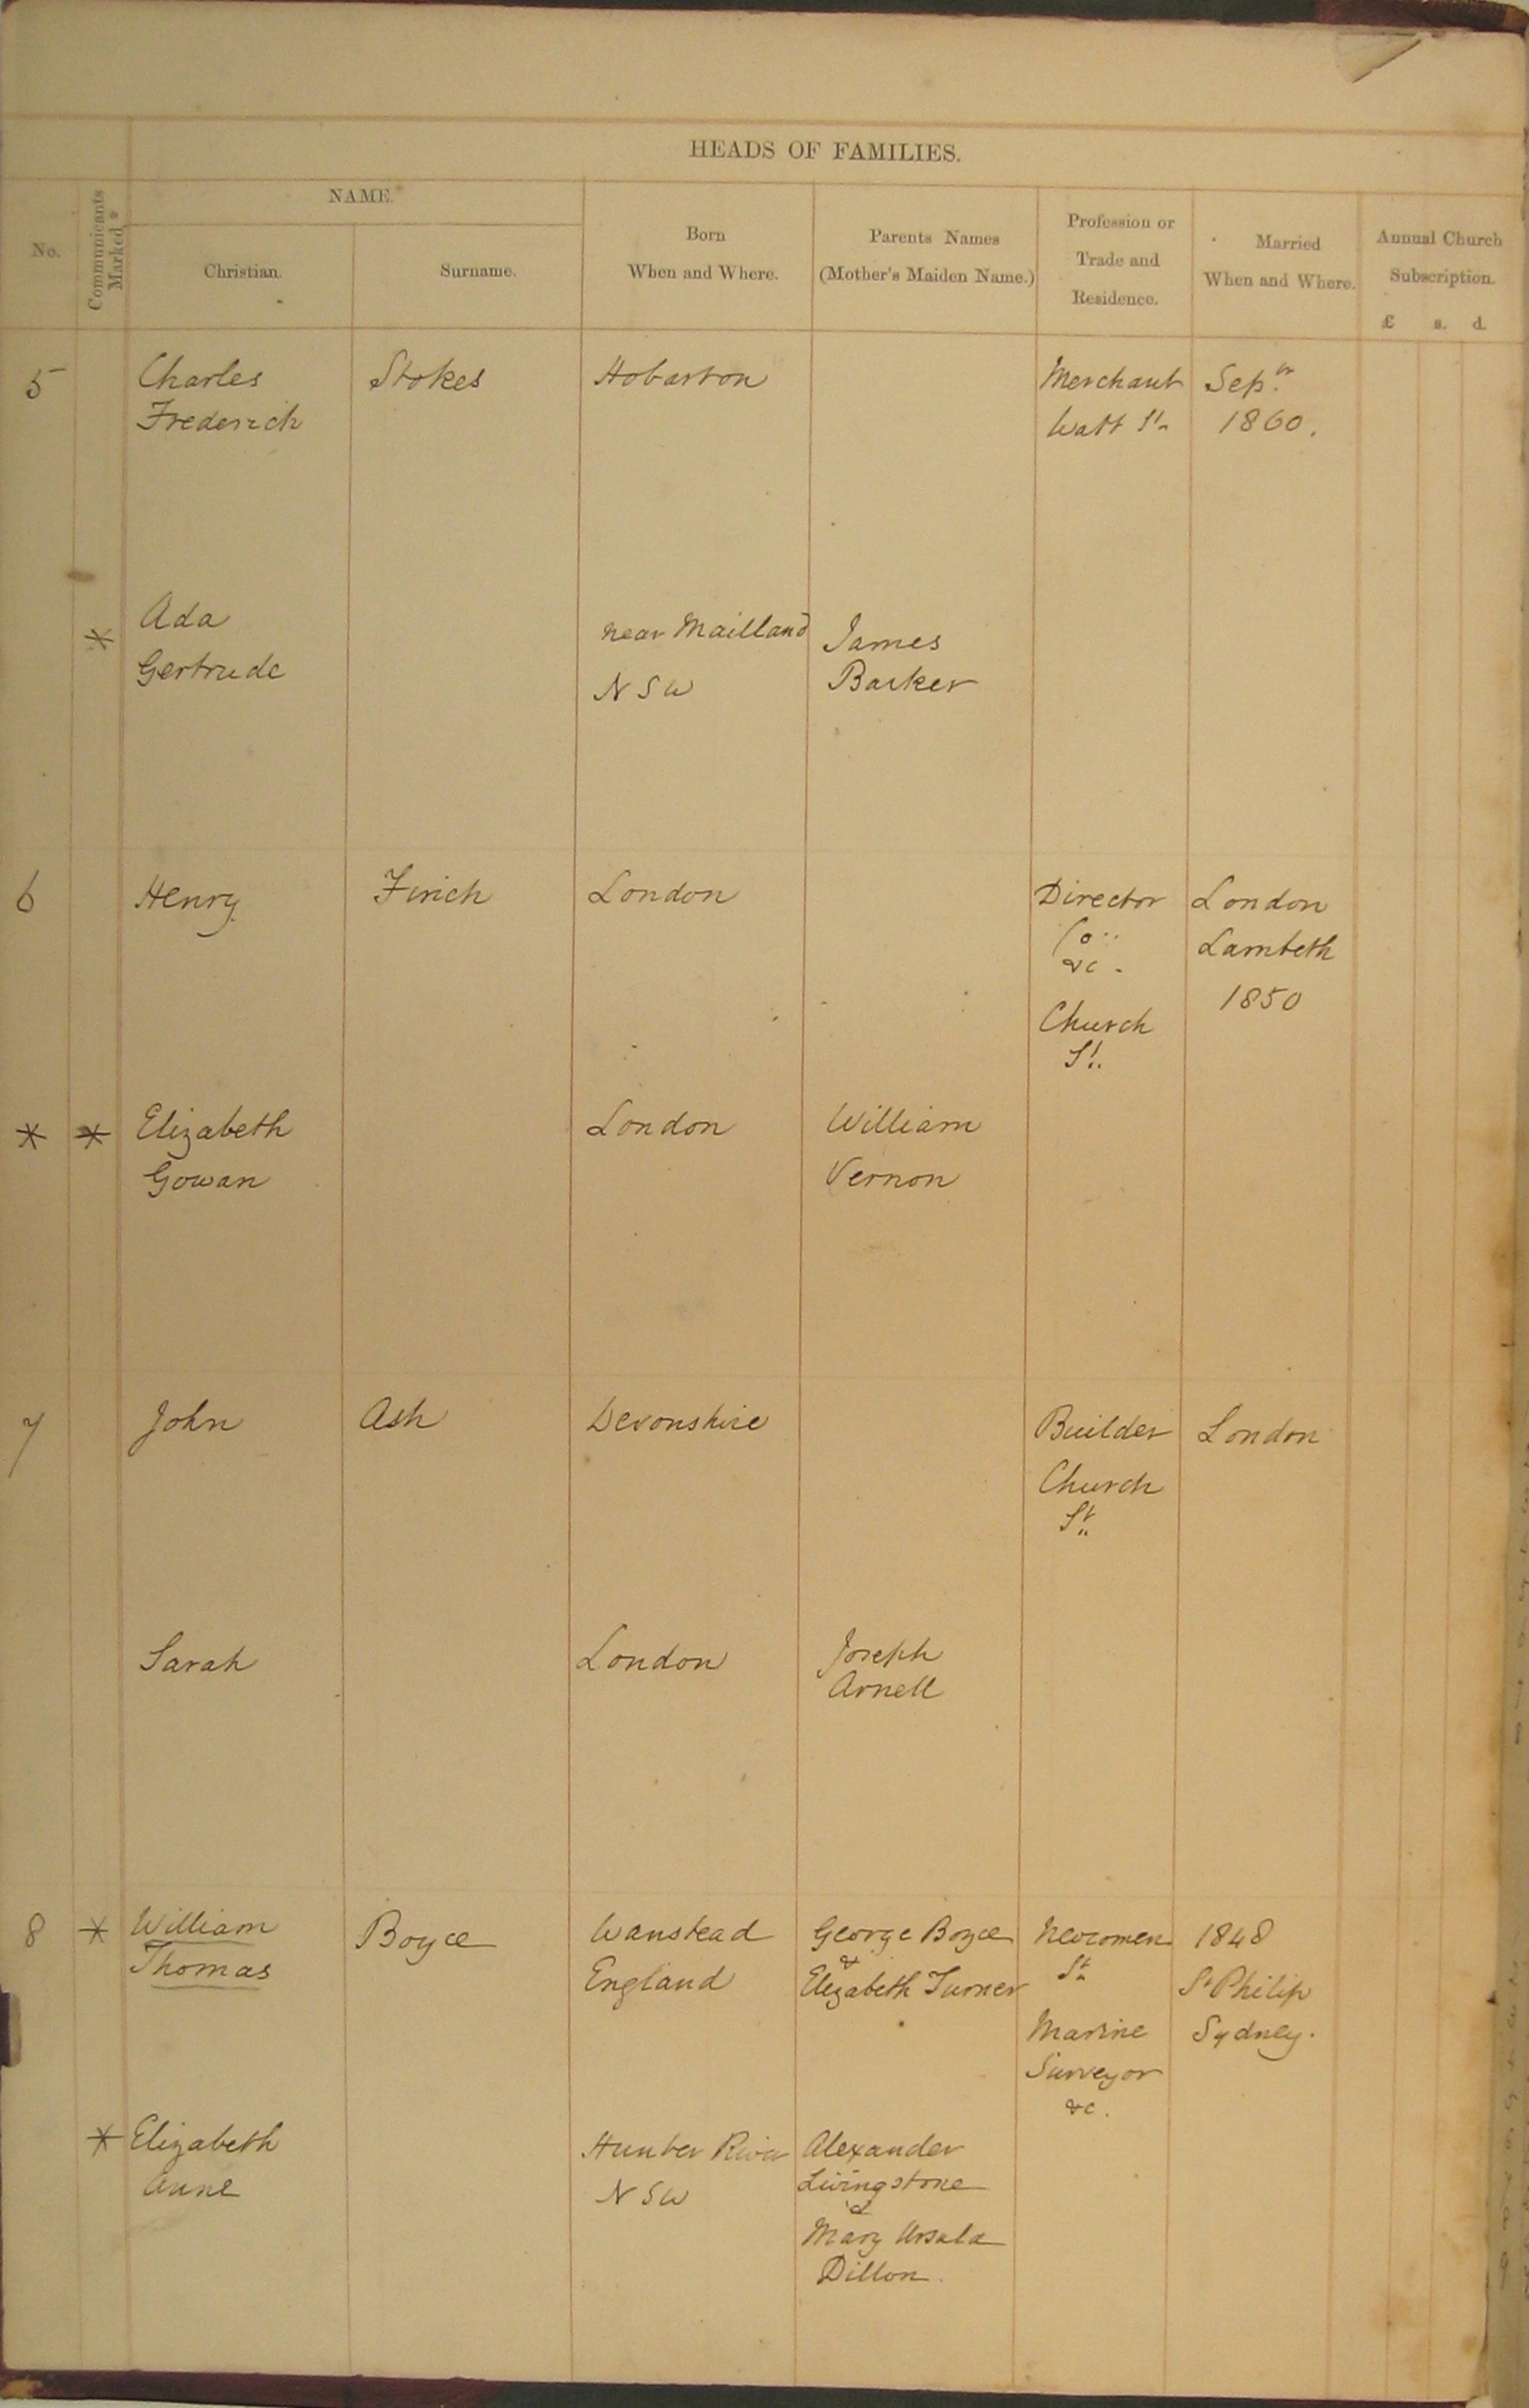 HEADS OF FAMILIES.
No.
Communicants Marked *
NAME.
Christian.
Surname.
Born
When and Where.
Parents Names
(Mother's Maiden Name.)
Profession or
Trade and
Residence.
Married
When and Where.
Annual Church
Subscription.
£ s. d.
5 Charles Stokes Hobarton Merchant Sepr.
Frederick Watt St. 1860.
* Ada near Maitland James
Gertrude NSW Barker
6 Henry Finch London Director London
Co. Lambeth
&c. 1850
Church
St.
* * Elizabeth London William
Gowan Vernon
7 John Ash Devonshire Builder London
Church
St.
Sarah London Joseph
Arnell
8 * William Boyce Wanstead George Boyce Newcomen 1848
Thomas England & Elizabeth Turner St. St Philip
Marine Sydney.
Surveyor
&c.
* Elizabeth Hunter River Alexander
Anne NSW Livingstone
&
Mary Ursula
Dillon.